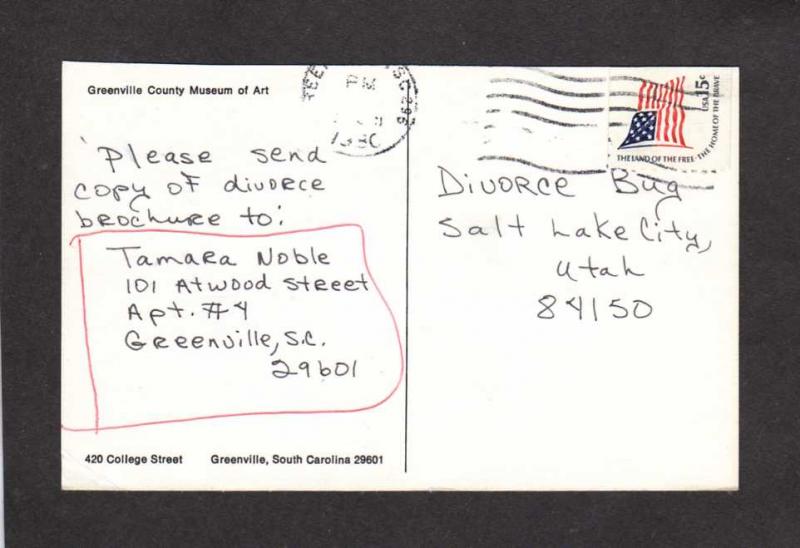 Greenville County Museum of Art
Please send
copy of divorce
brochure to:
Tamara Noble
101 Atwood Street
Apt. #4
Greenville, S.C.
29601
420 College Street Greenville, South Carolina 29601
PM
USA 15c
THE LAND OF THE FREE · THE HOME OF THE BRAVE
Divorce Bug
Salt Lake City,
Utah
84150